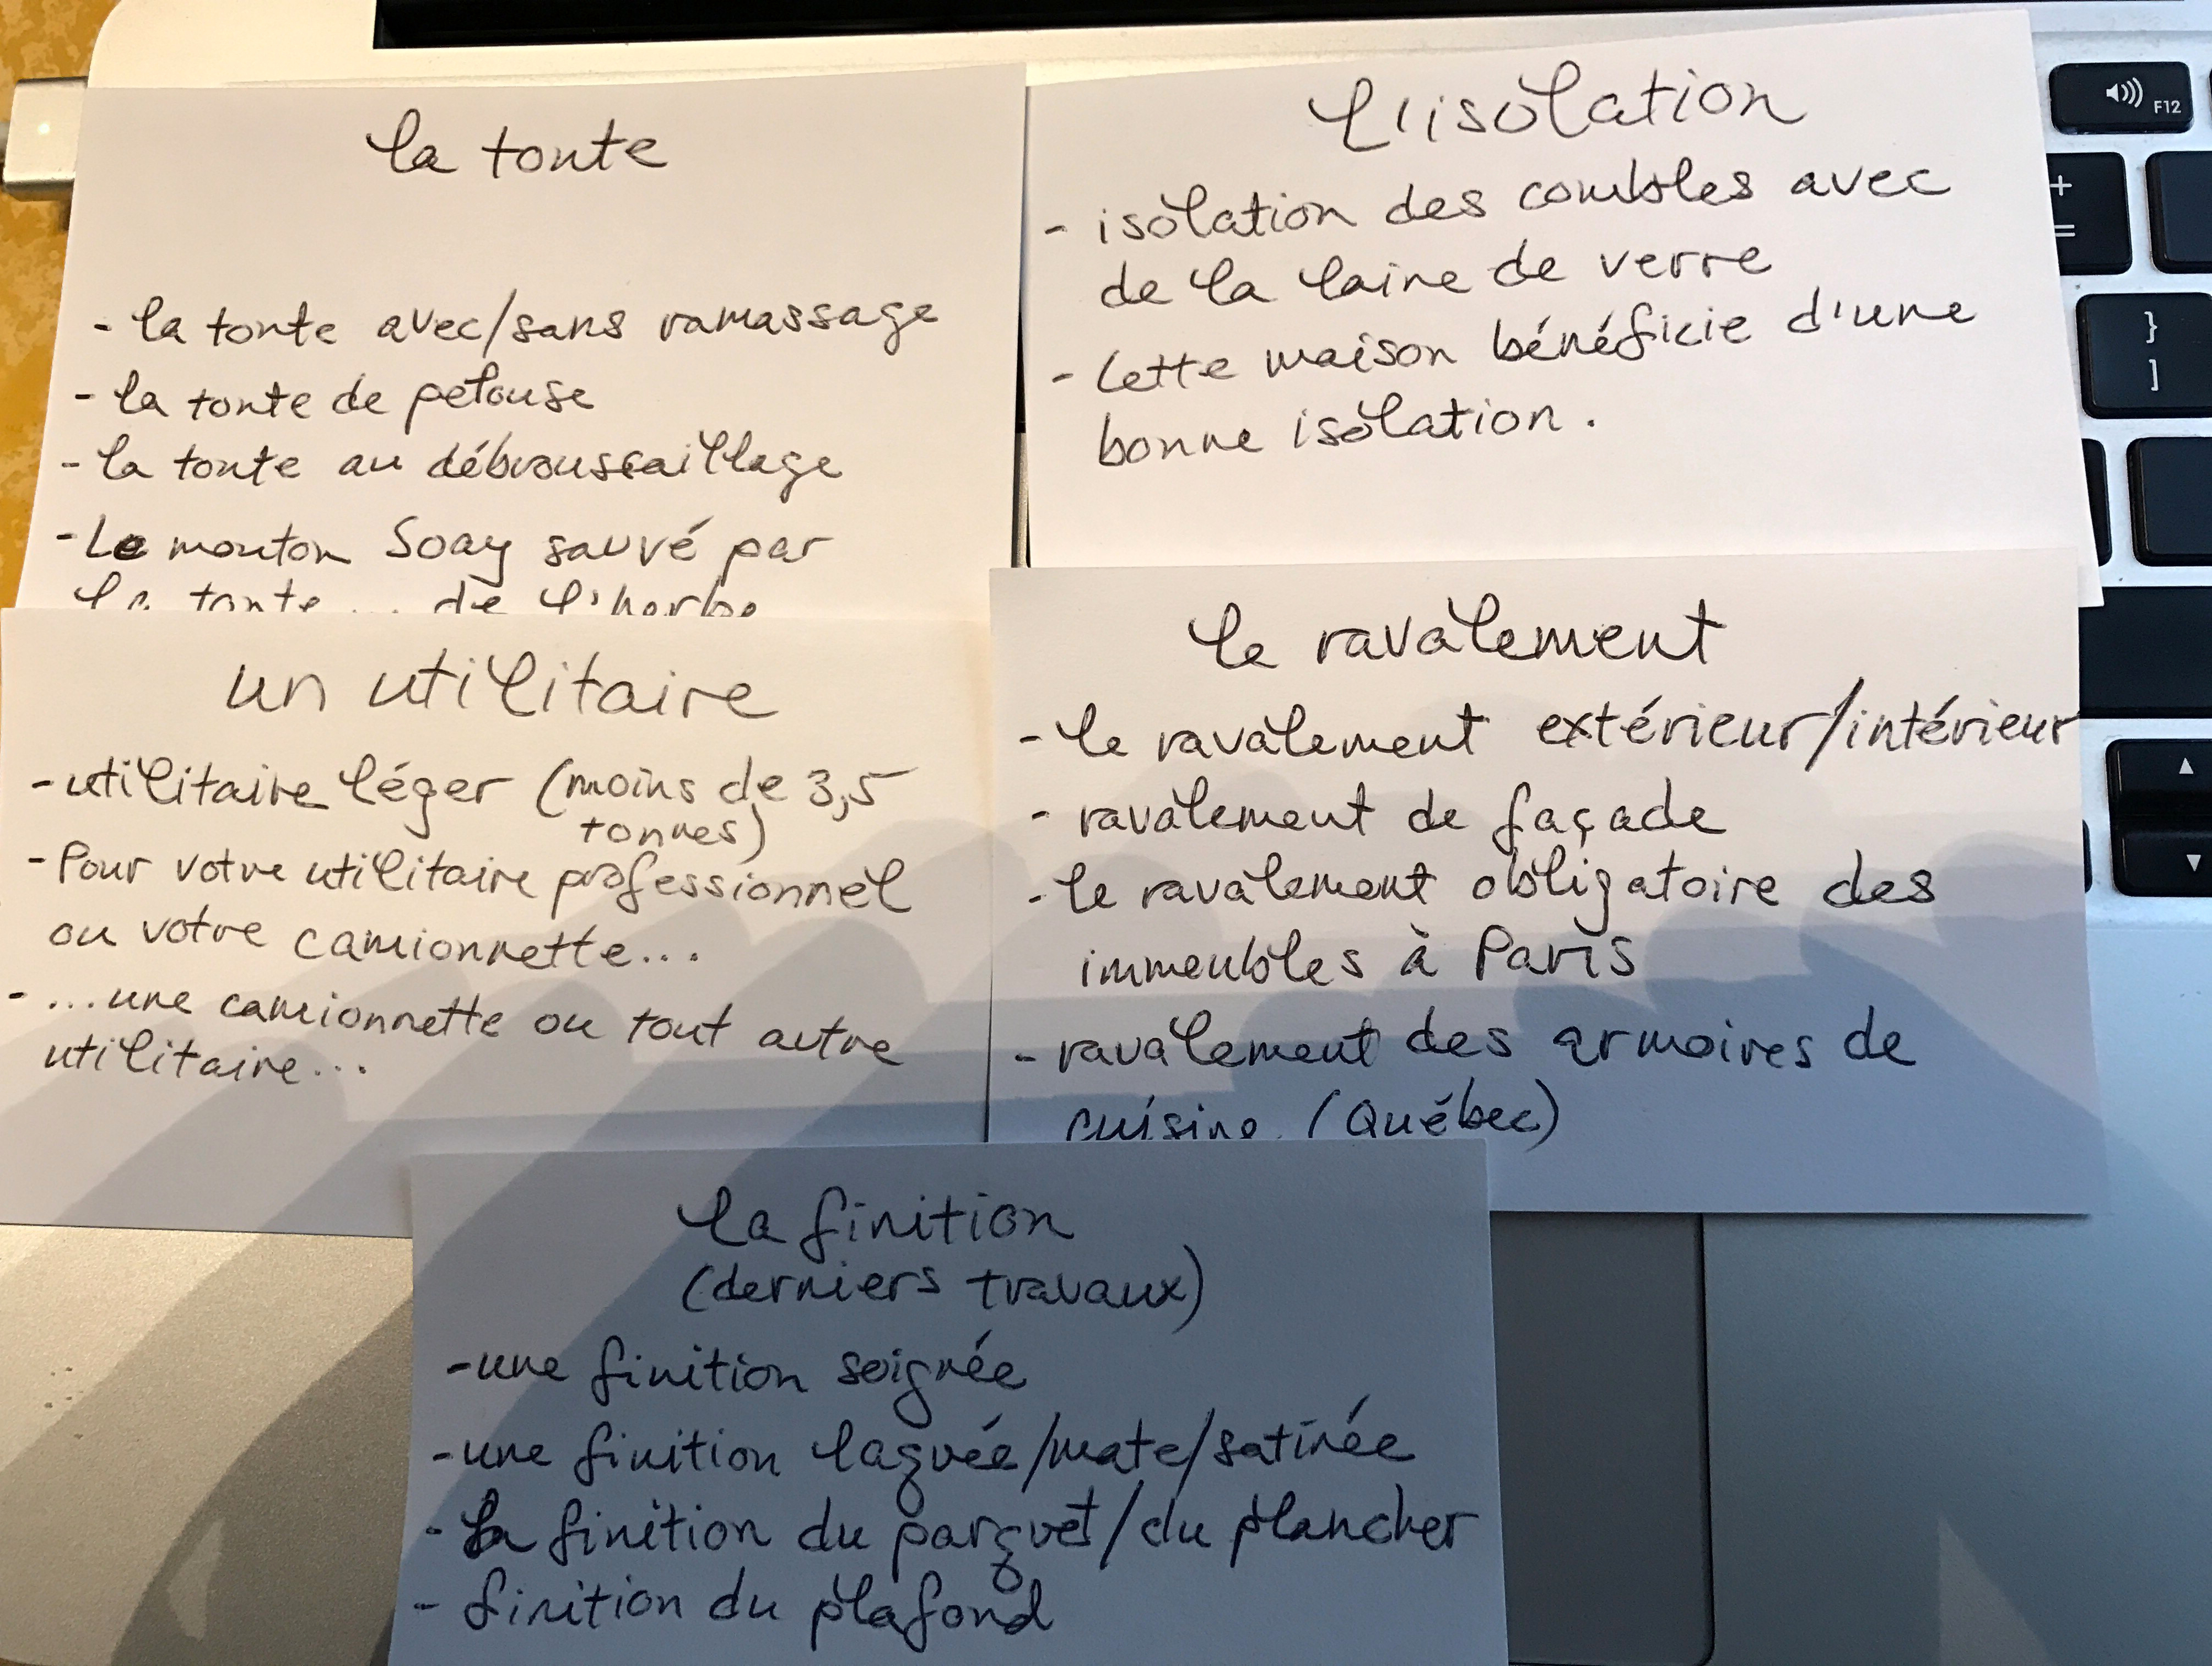 la tonte
- la tonte avec/sans ramassage
- la tonte de pelouse
- la tonte au débroussaillage
- Le mouton Soay sauvé par
la tonte... de l'herbe
L'isolation
- isolation des combles avec
de la laine de verre
- Cette maison bénéficie d'une
bonne isolation.
un utilitaire
- utilitaire léger (moins de 3,5
tonnes)
- Pour votre utilitaire professionnel
ou votre camionnette...
- ...une camionnette ou tout autre
utilitaire...
le ravalement
- le ravalement extérieur/intérieur
- ravalement de façade
- le ravalement obligatoire des
immeubles à Paris
- ravalement des armoires de
cuisine (Québec)
la finition
(derniers travaux)
- une finition soignée
- une finition laquée/mate/satinée
- la finition du parquet/du plancher
- finition du plafond
F12
+
=
}
]